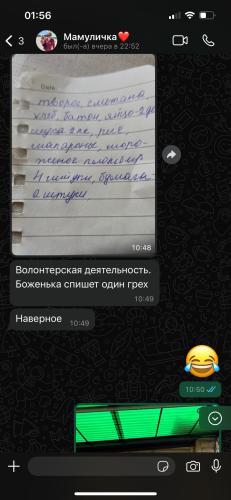 01:56
3
Мамуличка❤️
был(-а) вчера в 22:52
Date
творог, сметана
хлеб, батон, яйцо-2д
мука 2 пк, рис,
макароны, моро-
женое пломбир
4 штуки, бумага-
2 штуки
10:48
Волонтерская деятельность.
Боженька спишет один грех
10:49
Наверное
10:49
😂
10:50